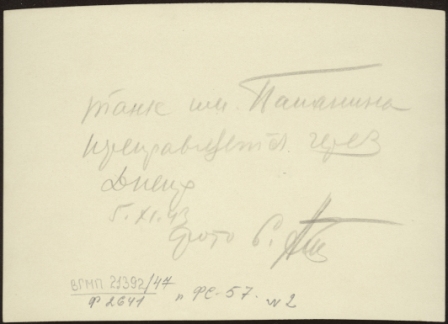 танк им. Папанина
переправляется через
Днепр
5.XI.43
Фото С.
ВГМП 21392/47
Ф 2641 п ФС-57. №2